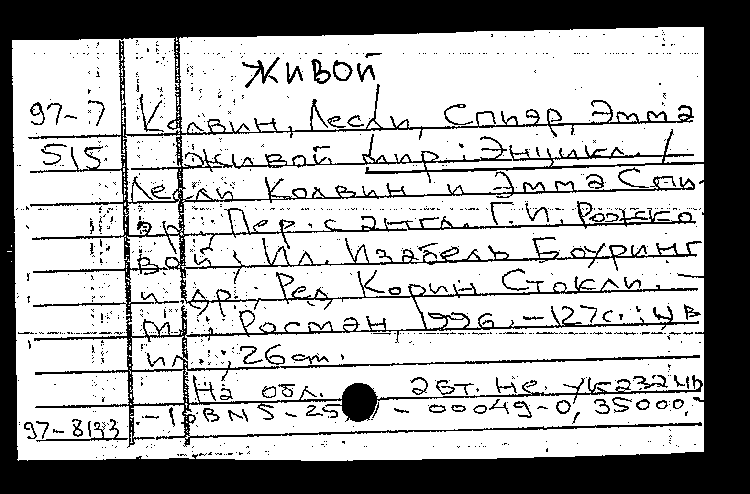 живой
97-7 Колвин, Лесли, Спиэр, Эмма
515 Живой мир: Энцикл. /
Лесли Колвин и Эмма Спи-
эр; Пер. с англ. Г.И. Рожко-
вой; Ил. Изабель Боуринг
и др.; Ред. Корин Стокли. -
М.: Росмэн, 1996. - 127с.: цв
ил.; 26см.
На обл. авт. не указаны
97-8133 - ISBN 5-25 - 00049-0, 35000.